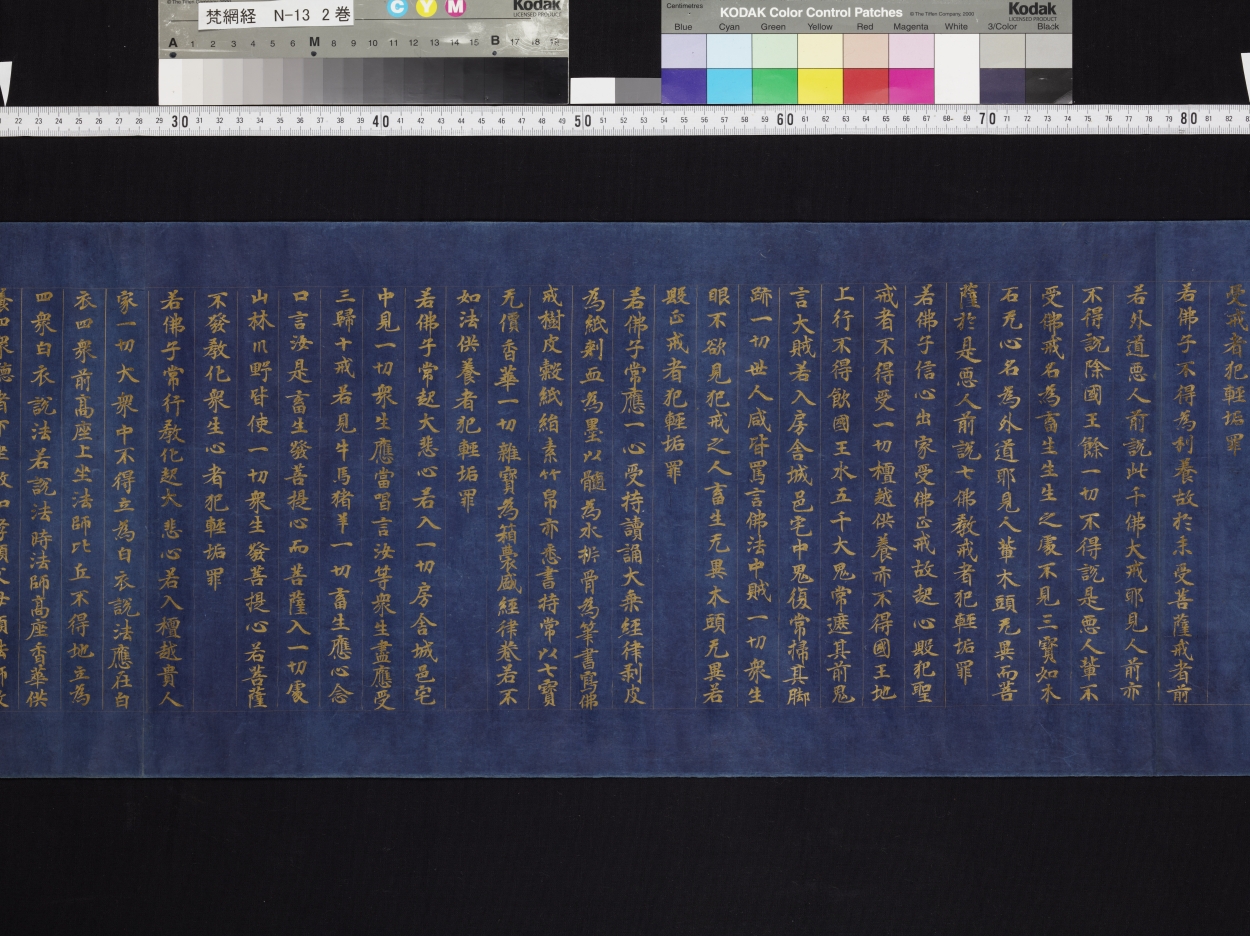 梵網経 N-13 2巻
Kodak
LICENSED PRODUCT
C Y M
A 1 2 3 4 5 6 M 8 9 10 11 12 13 14 15 B 17 18 19
Centimetres
KODAK Color Control Patches
© The Tiffen Company, 2000
Kodak
LICENSED PRODUCT
Blue Cyan Green Yellow Red Magenta White 3/Color Black
22 23 24 25 26 27 28 29 30 31 32 33 34 35 36 37 38 39 40 41 42 43 44 45 46 47 48 49 50 51 52 53 54 55 56 57 58 59 60 61 62 63 64 65 66 67 68 69 70 71 72 73 74 75 76 77 78 79 80 81 82
受戒者犯輕垢罪
若佛子不得為利養故於未受菩薩戒者前
若外道悪人前說此千佛大戒耶見人前亦
不得說除國王餘一切不得說是悪人輩不
受佛戒名為畜生生生之處不見三寶如木
石无心名為外道耶見人輩木頭无異而菩
薩於是悪人前說七佛教戒者犯輕垢罪
若佛子信心出家受佛正戒故起心毀犯聖
戒者不得受一切檀越供養亦不得國王地
上行不得飲國王水五千大鬼常遮其前鬼
言大賊若入房舍城邑宅中鬼復常掃其脚
跡一切世人咸皆罵言佛法中賊一切衆生
眼不欲見犯戒之人畜生无異木頭无異若
毀正戒者犯輕垢罪
若佛子常應一心受持讀誦大乗經律剥皮
為紙刺血為墨以髓為水析骨為筆書寫佛
戒樹皮穀紙絹素竹帛亦悉書持常以七寶
无價香華一切雜寶為箱囊盛經律卷若不
如法供養者犯輕垢罪
若佛子常起大悲心若入一切房舍城邑宅
中見一切衆生應當唱言汝等衆生盡應受
三歸十戒若見牛馬猪羊一切畜生應心念
口言汝是畜生發菩提心而菩薩入一切處
山林川野皆使一切衆生發菩提心若菩薩
不發教化衆生心者犯輕垢罪
若佛子常行教化起大悲心若入檀越貴人
家一切大衆中不得立為白衣說法應在白
衣四衆前高座上坐法師比丘不得地立為
四衆白衣說法若說法時法師高座香華供